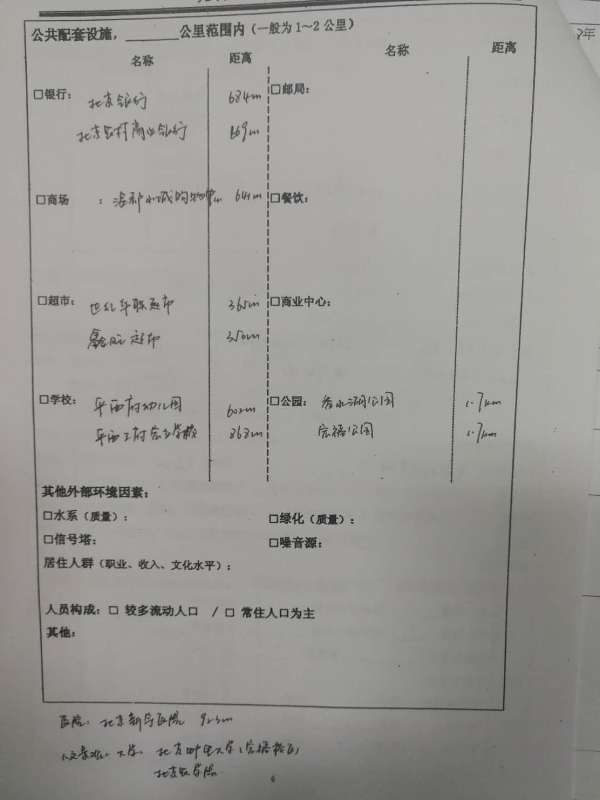 公共配套设施，______公里范围内（一般为1～2公里）
名称 距离 名称 距离
□银行： 北京银行 684m □邮局：
北京农村商业银行 869m
□商场 ： 水城购物中心 641m □餐饮：
□超市： 世纪华联超市 365m □商业中心：
超市 350m
□学校： 平西府幼儿园 602m □公园： 秀水湖公园 1.7km
平西王府 学校 868m 宏福公园 1.7km
其他外部环境因素：
□水系（质量）： □绿化（质量）：
□信号塔： □噪音源：
居住人群（职业、收入、文化水平）：
人员构成：□ 较多流动人口 / □ 常住人口为主
其他：
医院： 北京 医院 923m
大学： 北京邮电大学（宏福校区）
北京 学院
6
年